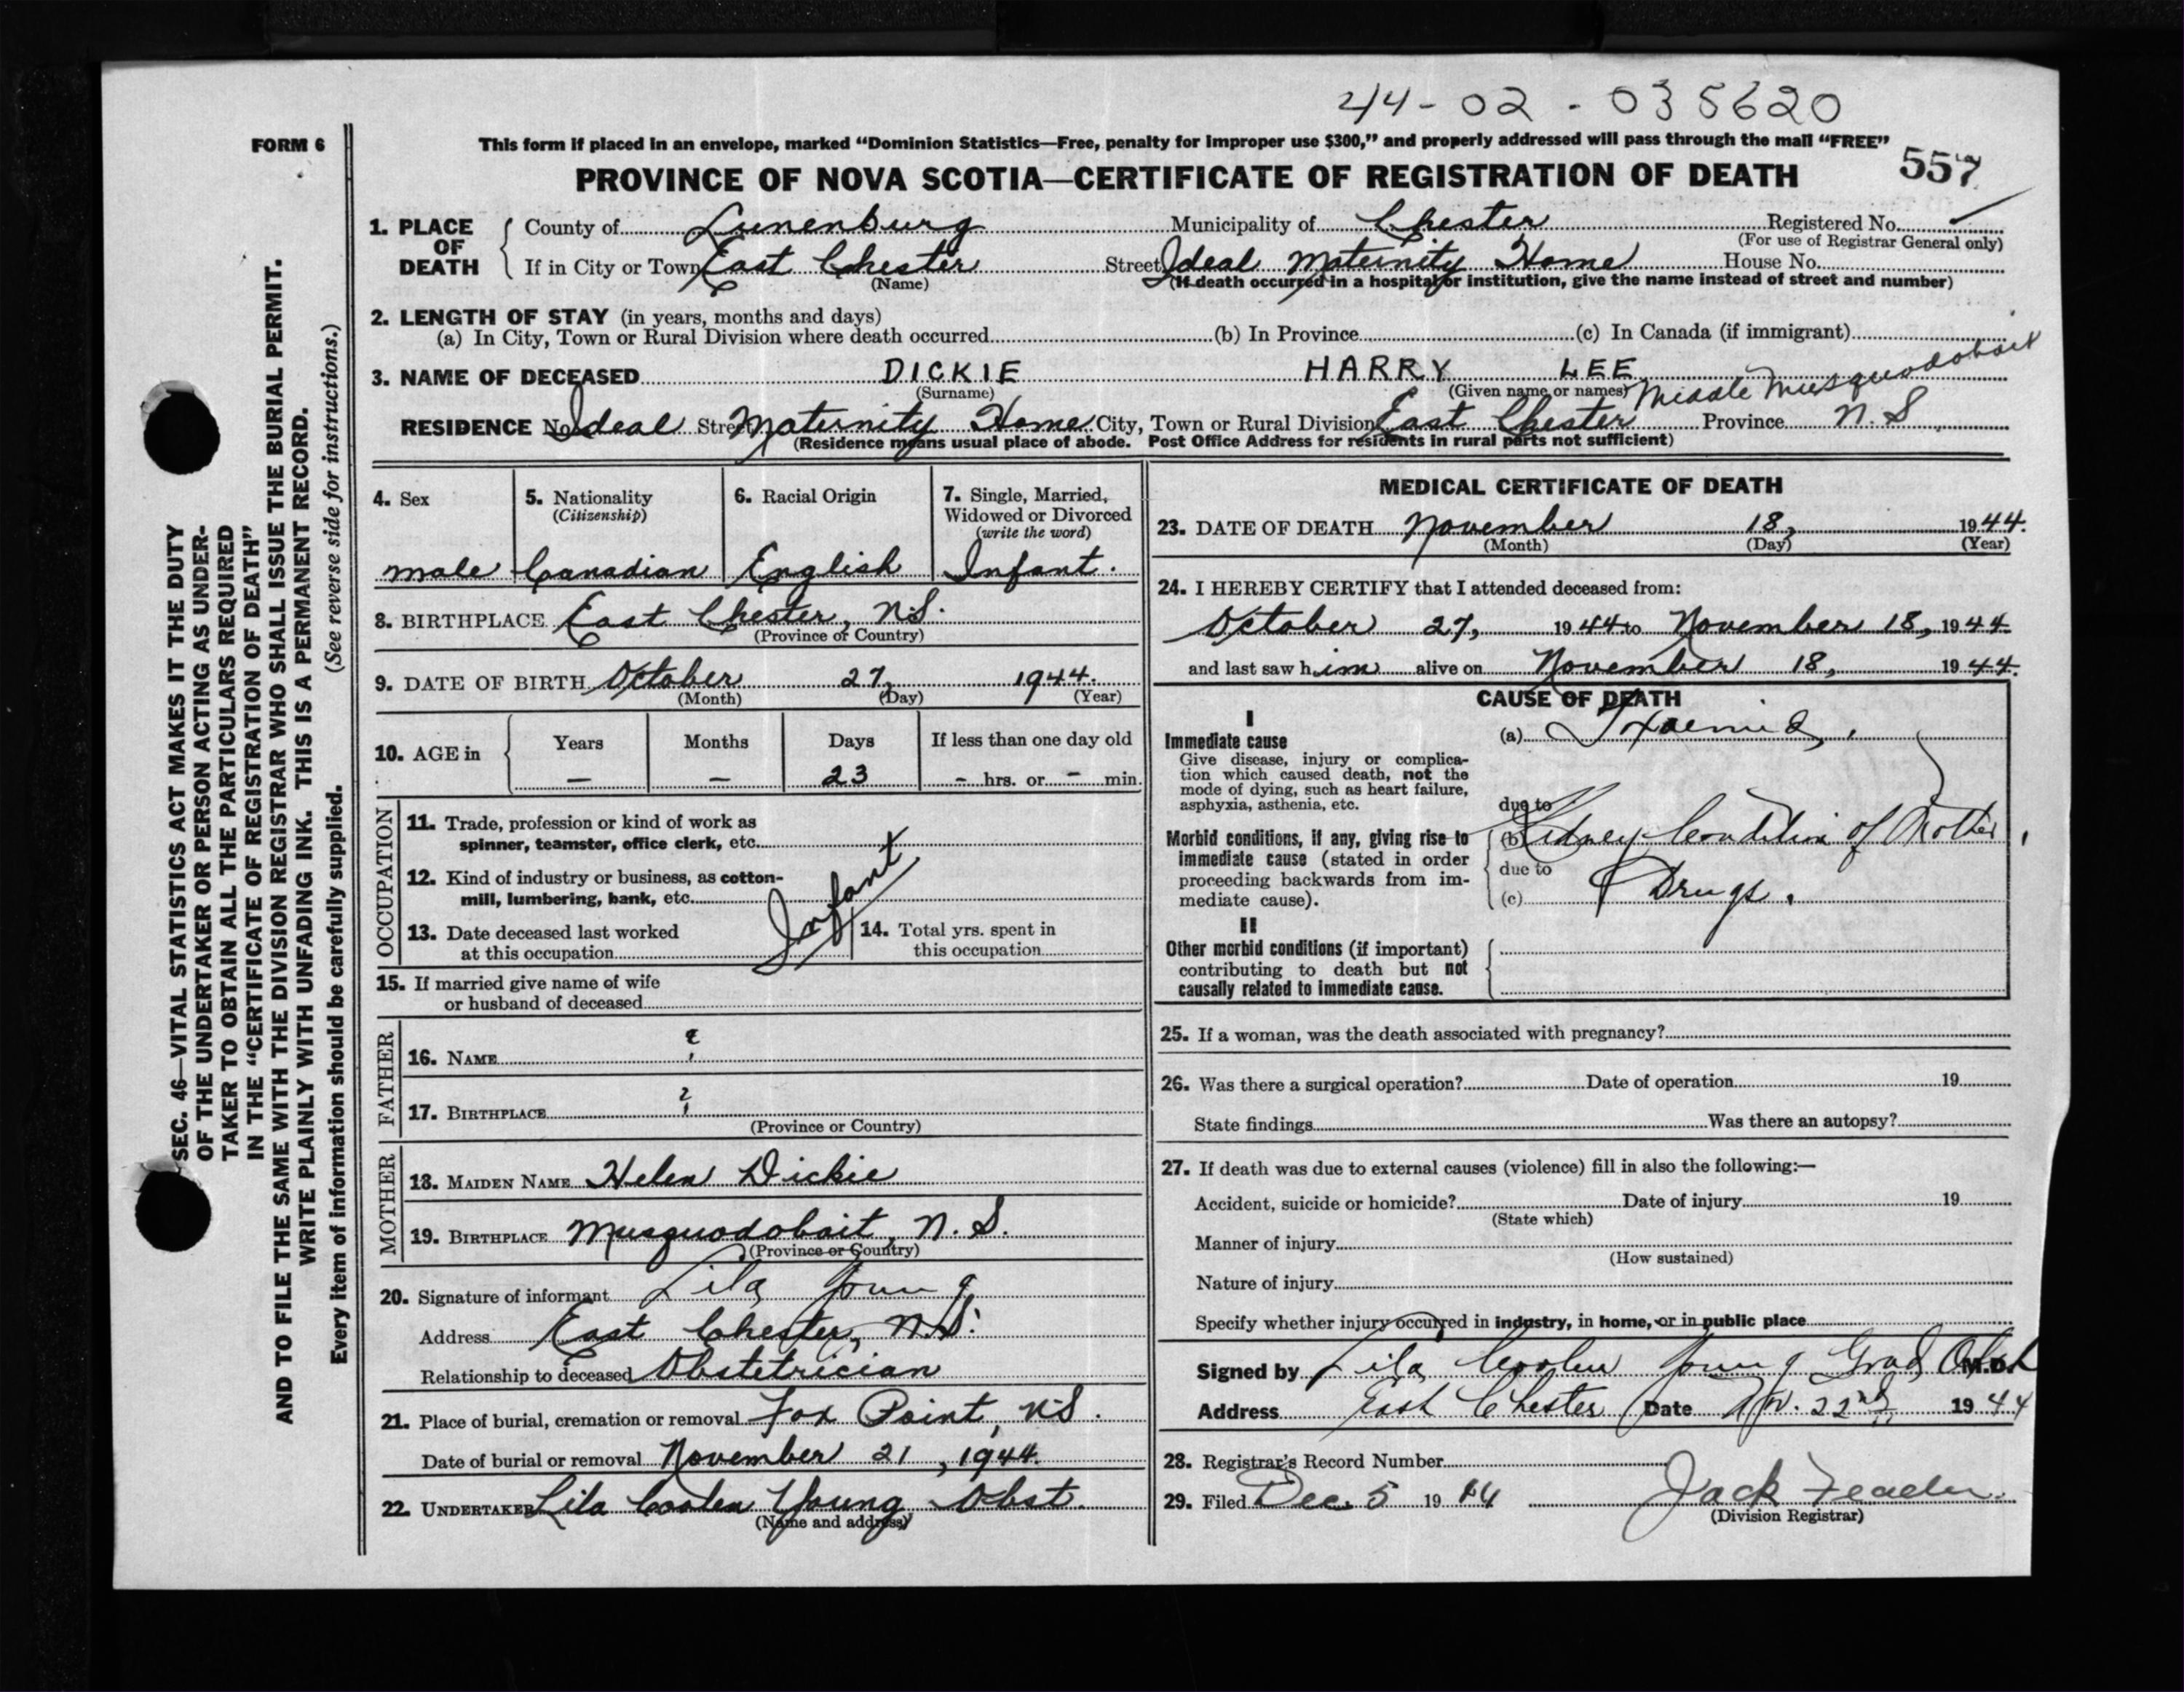 44-02-035620
FORM 6
This form if placed in an envelope, marked “Dominion Statistics—Free, penalty for improper use $300,” and properly addressed will pass through the mail “FREE”
PROVINCE OF NOVA SCOTIA—CERTIFICATE OF REGISTRATION OF DEATH
557
1. PLACE OF DEATH
County of Lunenburg Municipality of Chester Registered No.
(For use of Registrar General only)
If in City or Town East Chester Street Ideal Maternity Home House No.
(Name) (If death occurred in a hospital or institution, give the name instead of street and number)
2. LENGTH OF STAY (in years, months and days)
(a) In City, Town or Rural Division where death occurred (b) In Province (c) In Canada (if immigrant)
3. NAME OF DECEASED DICKIE HARRY LEE
(Surname) (Given name or names) Middle Musquodoboit
RESIDENCE No. Ideal Street Maternity Home City, Town or Rural Division East Chester Province N.S.
(Residence means usual place of abode. Post Office Address for residents in rural parts not sufficient)
4. Sex male
5. Nationality (Citizenship) Canadian
6. Racial Origin English
7. Single, Married, Widowed or Divorced (write the word) Infant.
8. BIRTHPLACE East Chester, N.S.
(Province or Country)
9. DATE OF BIRTH October 27, 1944.
(Month) (Day) (Year)
10. AGE in Years Months Days If less than one day old
— — 23 - hrs. or - min.
OCCUPATION
11. Trade, profession or kind of work as spinner, teamster, office clerk, etc.
12. Kind of industry or business, as cotton-mill, lumbering, bank, etc.
Infant
13. Date deceased last worked at this occupation
14. Total yrs. spent in this occupation
15. If married give name of wife or husband of deceased
FATHER
16. NAME ?
17. BIRTHPLACE ?
(Province or Country)
MOTHER
18. MAIDEN NAME Helen Dickie
19. BIRTHPLACE Musquodoboit, N.S.
(Province or Country)
20. Signature of informant Lila Young
Address East Chester, N.S.
Relationship to deceased Obstetrician
21. Place of burial, cremation or removal Fox Point, N.S.
Date of burial or removal November 21, 1944.
22. UNDERTAKER Lila Coolen Young Obst.
(Name and address)
MEDICAL CERTIFICATE OF DEATH
23. DATE OF DEATH November 18, 1944.
(Month) (Day) (Year)
24. I HEREBY CERTIFY that I attended deceased from:
October 27, 1944 to November 18, 1944
and last saw him alive on November 18, 1944.
CAUSE OF DEATH
I
Immediate cause
Give disease, injury or complica-
tion which caused death, not the
mode of dying, such as heart failure,
asphyxia, asthenia, etc.
(a) Toxaemia,
due to
Morbid conditions, if any, giving rise to
immediate cause (stated in order
proceeding backwards from im-
mediate cause).
(b) Kidney Condition of Mother,
due to
(c) Drugs.
II
Other morbid conditions (if important)
contributing to death but not
causally related to immediate cause.
25. If a woman, was the death associated with pregnancy?
26. Was there a surgical operation? Date of operation 19
State findings Was there an autopsy?
27. If death was due to external causes (violence) fill in also the following:—
Accident, suicide or homicide? Date of injury 19
(State which)
Manner of injury
(How sustained)
Nature of injury
Specify whether injury occurred in industry, in home, or in public place
Signed by Lila Coolen Young Grad. M.D.
Address East Chester Date 22nd 1944
28. Registrar's Record Number
29. Filed Dec. 5 1944 Jack
(Division Registrar)
SEC. 46—VITAL STATISTICS ACT MAKES IT THE DUTY
OF THE UNDERTAKER OR PERSON ACTING AS UNDER-
TAKER TO OBTAIN ALL THE PARTICULARS REQUIRED
IN THE “CERTIFICATE OF REGISTRATION OF DEATH”
AND TO FILE THE SAME WITH THE DIVISION REGISTRAR WHO SHALL ISSUE THE BURIAL PERMIT.
WRITE PLAINLY WITH UNFADING INK. THIS IS A PERMANENT RECORD.
Every item of information should be carefully supplied. (See reverse side for instructions.)